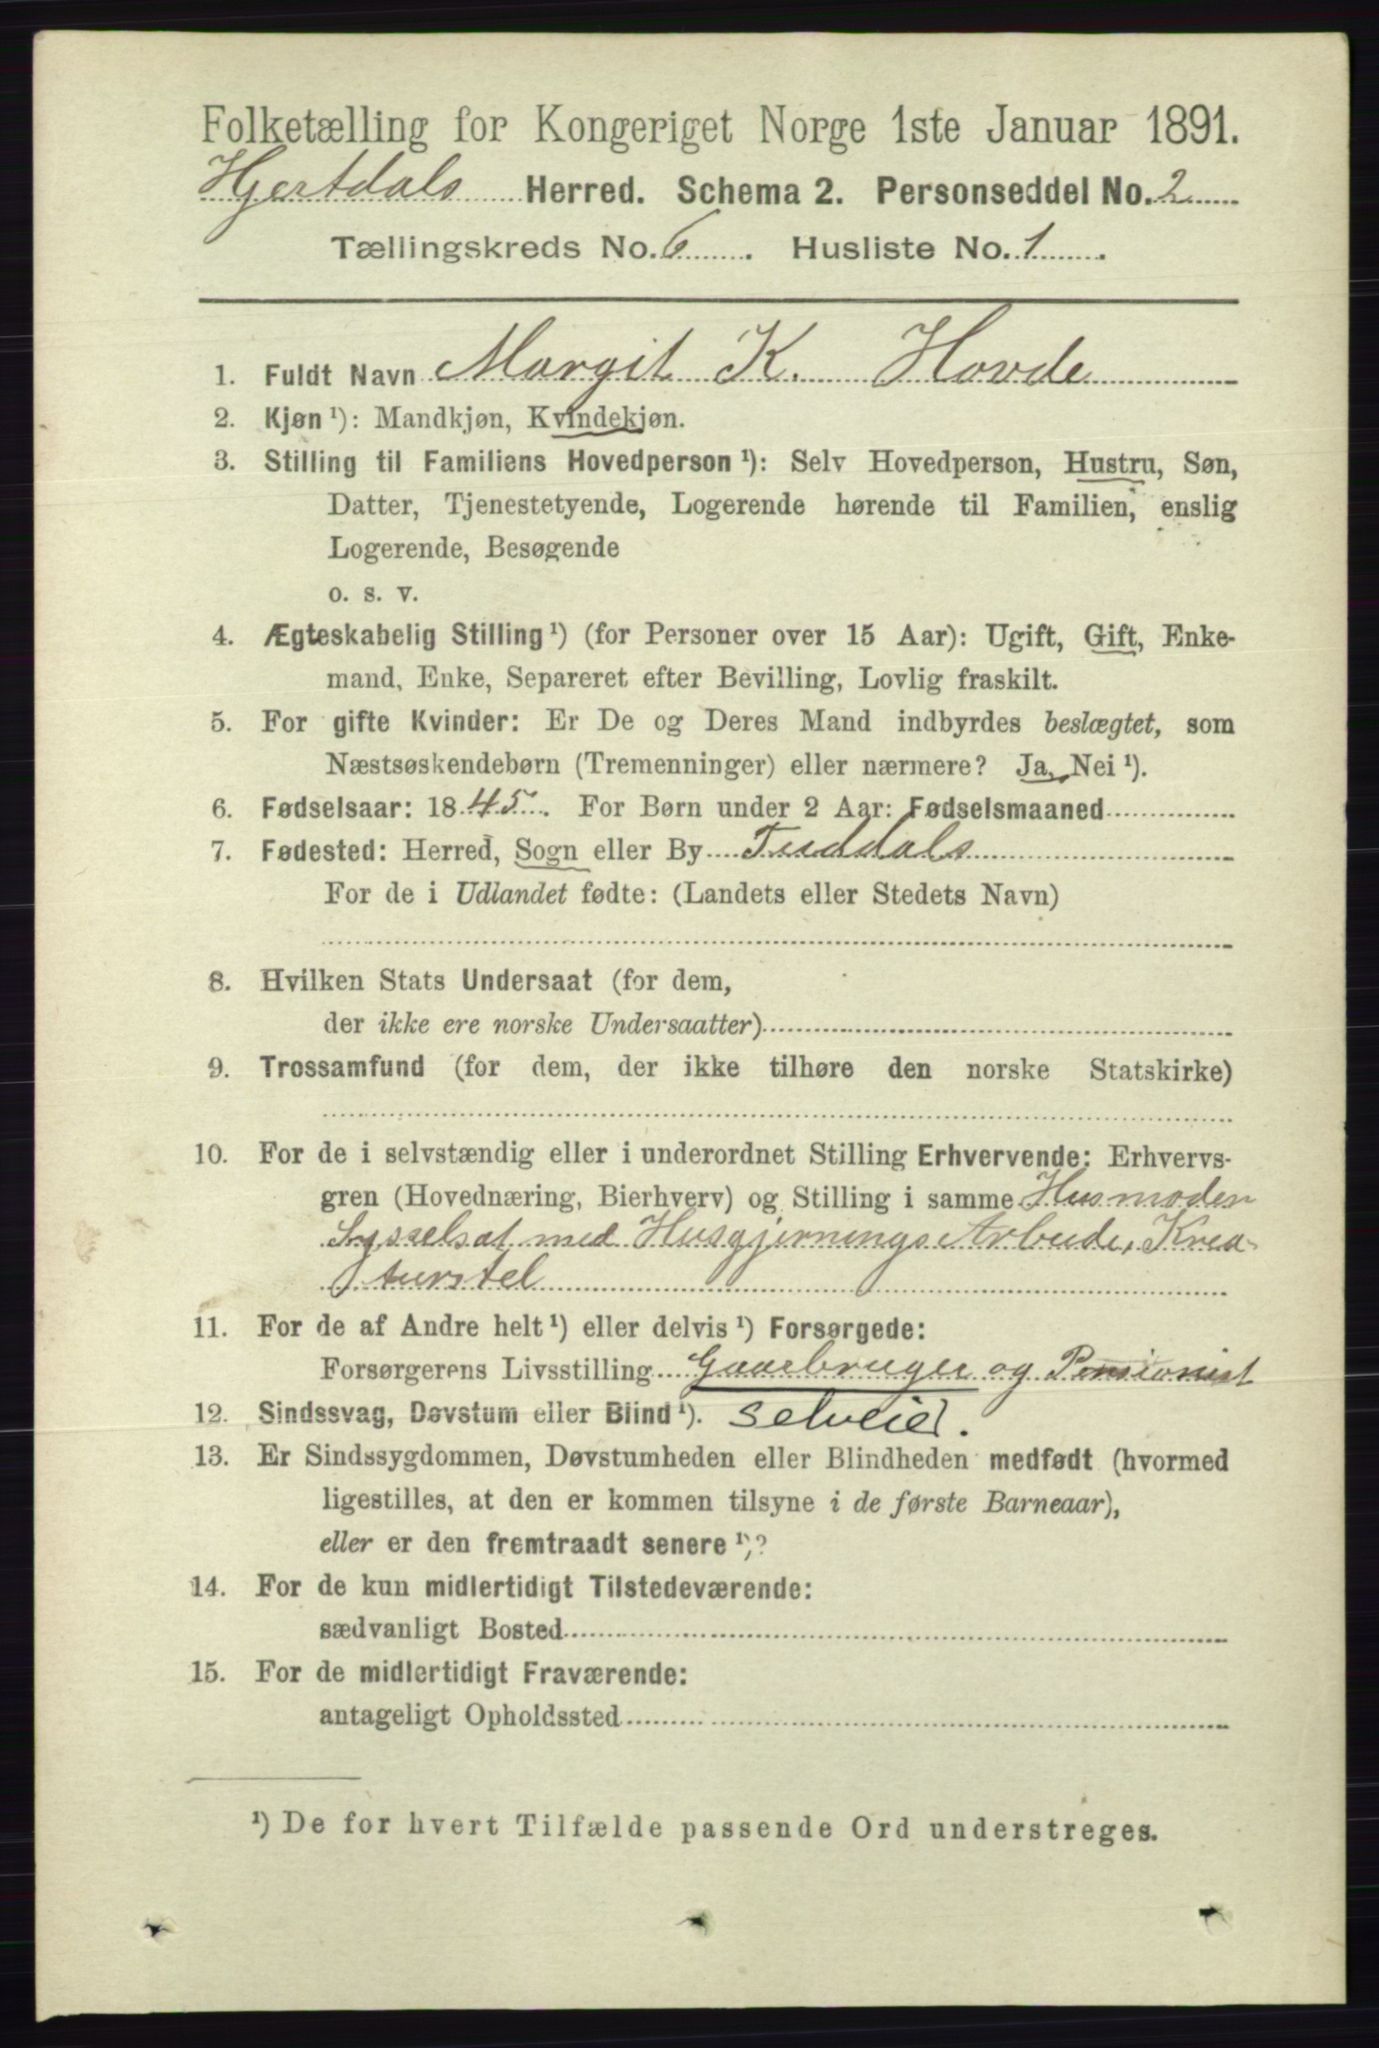 Folketælling for Kongeriget Norge 1ste Januar 1891.
Hjertdals Herred. Schema 2. Personseddel No. 2
Tællingskreds No. 6. Husliste No. 1.
1. Fuldt Navn Margit K. Hovde
2. Kjøn¹): Mandkjøn, Kvindekjøn.
3. Stilling til Familiens Hovedperson¹): Selv Hovedperson, Hustru, Søn,
Datter, Tjenestetyende, Logerende hørende til Familien, enslig
Logerende, Besøgende
o. s. v.
4. Ægteskabelig Stilling¹) (for Personer over 15 Aar): Ugift, Gift, Enke-
mand, Enke, Separeret efter Bevilling, Lovlig fraskilt.
5. For gifte Kvinder: Er De og Deres Mand indbyrdes beslægtet, som
Næstsøskendebørn (Tremenninger) eller nærmere? Ja, Nei¹).
6. Fødselsaar: 1845. For Børn under 2 Aar: Fødselsmaaned
7. Fødested: Herred, Sogn eller By Tuddals
For de i Udlandet fødte: (Landets eller Stedets Navn)
8. Hvilken Stats Undersaat (for dem,
der ikke ere norske Undersaatter)
9. Trossamfund (for dem, der ikke tilhøre den norske Statskirke)
10. For de i selvstændig eller i underordnet Stilling Erhvervende: Erhvervs-
gren (Hovednæring, Bierhverv) og Stilling i samme Husmoder
Sysselsat med Husgjernings Arbude, Krea-
turstel
11. For de af Andre helt¹) eller delvis¹) Forsørgede:
Forsørgerens Livsstilling Gaarbruger og Pensionist
12. Sindssvag, Døvstum eller Blind¹). selveier.
13. Er Sindssygdommen, Døvstumheden eller Blindheden medfødt (hvormed
ligestilles, at den er kommen tilsyne i de første Barneaar),
eller er den fremtraadt senere¹)?
14. For de kun midlertidigt Tilstedeværende:
sædvanligt Bosted
15. For de midlertidigt Fraværende:
antageligt Opholdssted
¹) De for hvert Tilfælde passende Ord understreges.